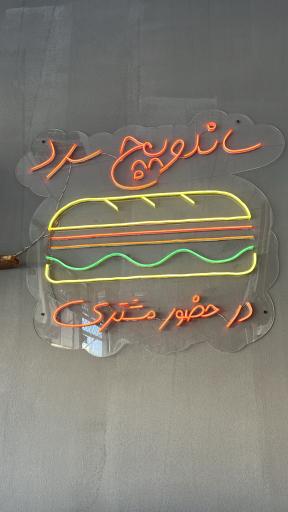 ساندویچ سرد
در حضور مشتری